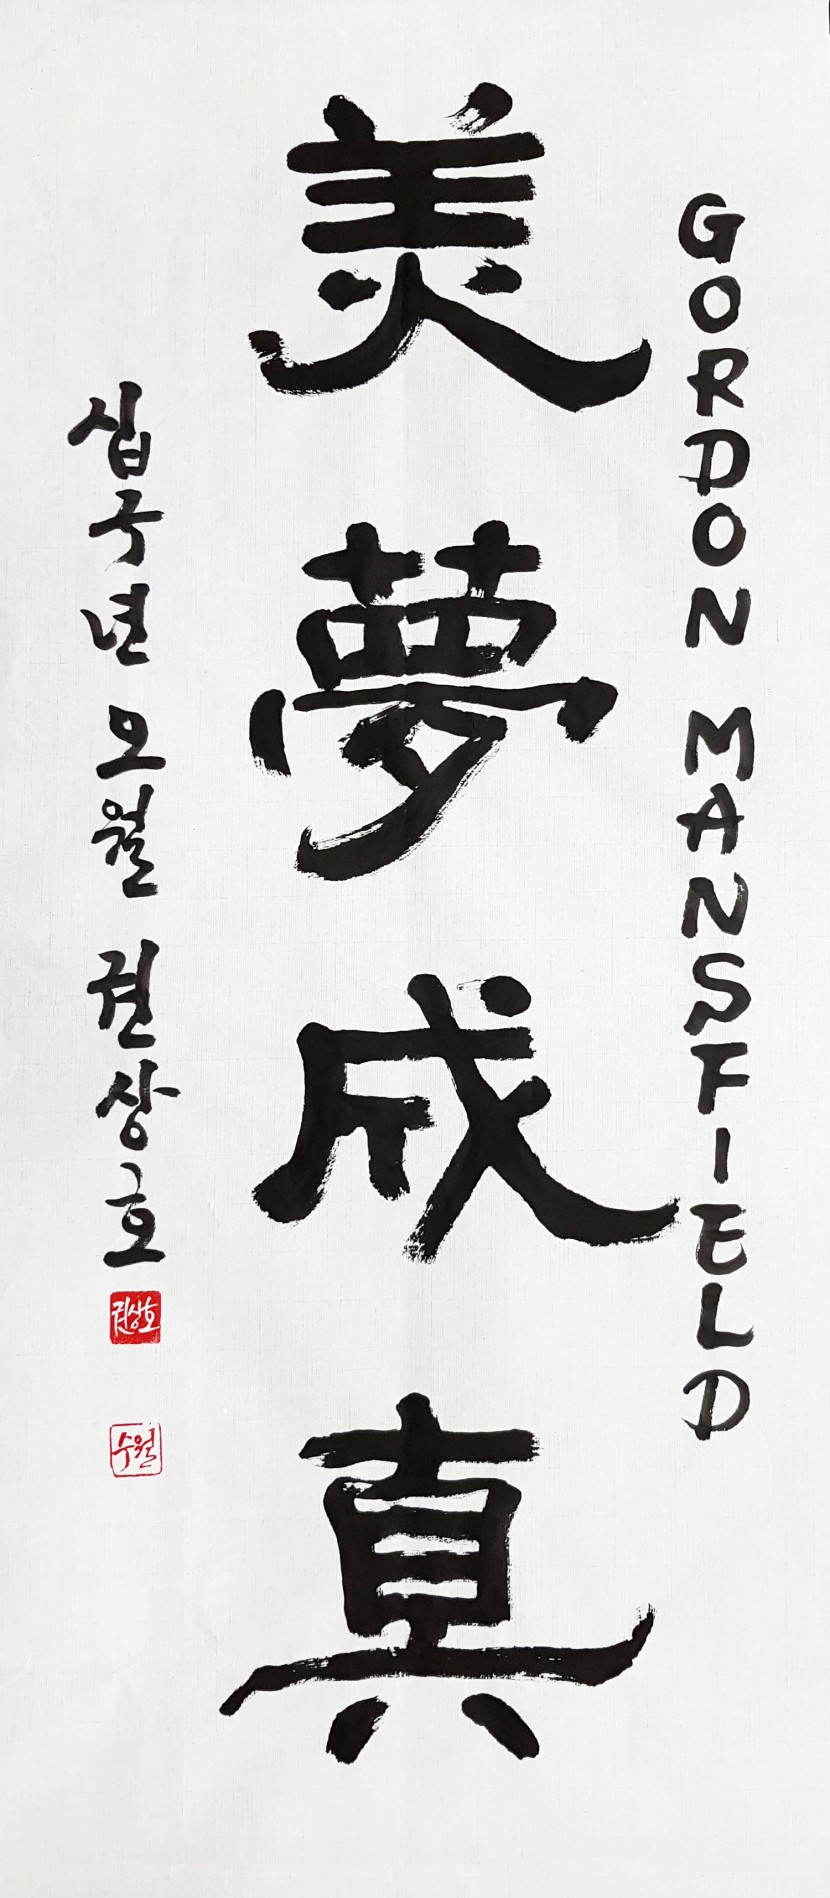 GORDON MANSFIELD
美夢成真
십구년 오월 권상호
권상호
수월